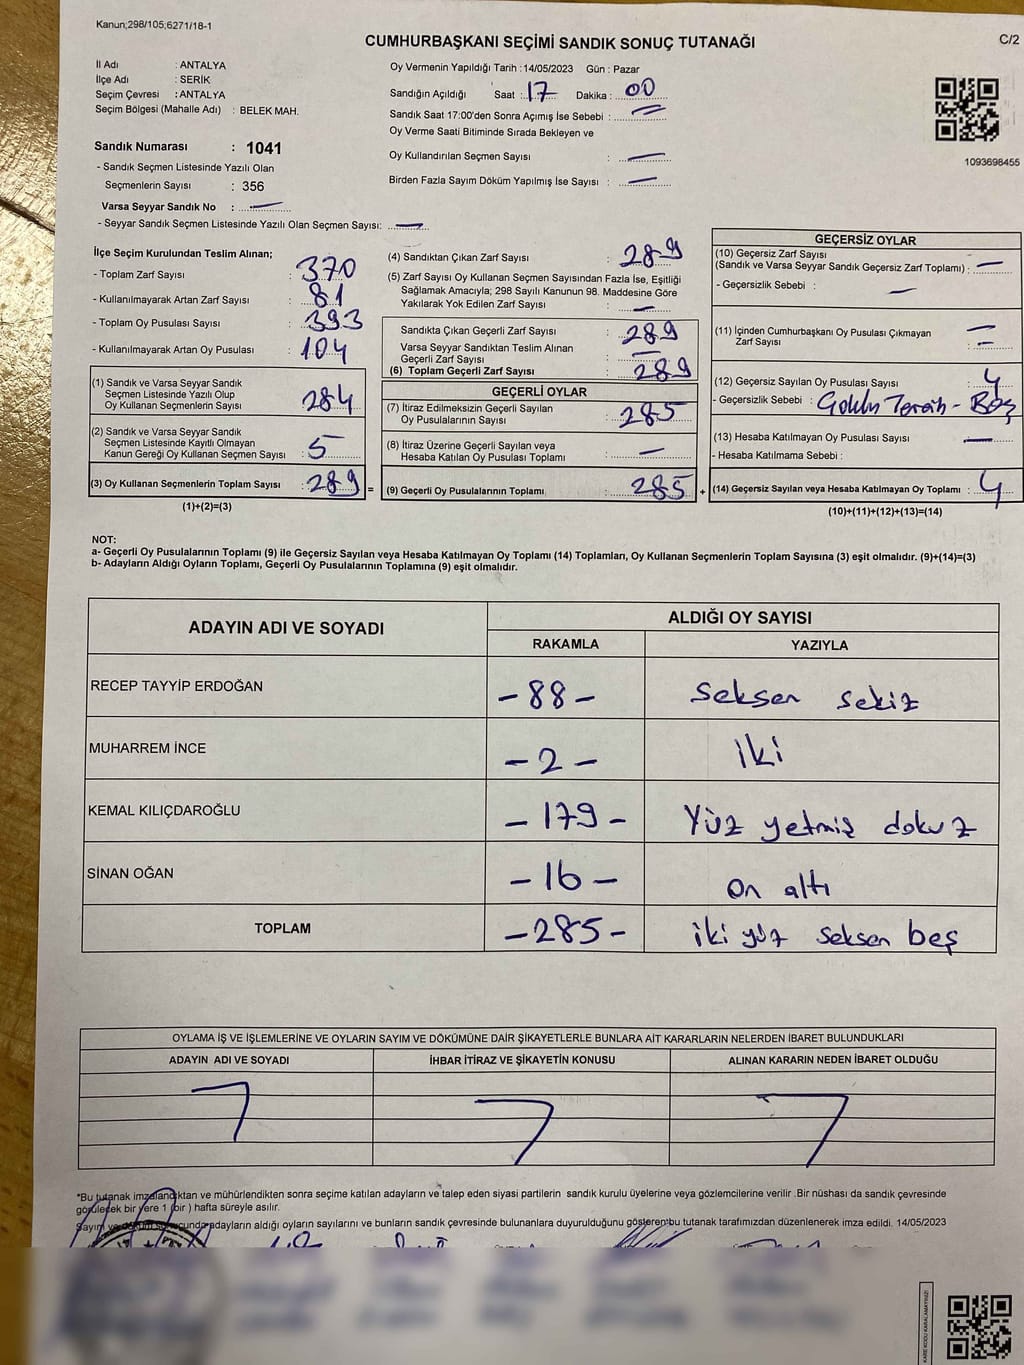 Kanun;298/105;6271/18-1
CUMHURBAŞKANI SEÇİMİ SANDIK SONUÇ TUTANAĞI
C/2
İl Adı : ANTALYA
İlçe Adı : SERİK
Seçim Çevresi : ANTALYA
Seçim Bölgesi (Mahalle Adı) : BELEK MAH.
Oy Vermenin Yapıldığı Tarih :14/05/2023 Gün : Pazar
Sandığın Açıldığı Saat : 17 Dakika : 00
Sandık Saat 17:00'den Sonra Açımış İse Sebebi : —
Oy Verme Saati Bitiminde Sırada Bekleyen ve
Oy Kullandırılan Seçmen Sayısı : —
Birden Fazla Sayım Döküm Yapılmış İse Sayısı : —
1093698455
Sandık Numarası : 1041
- Sandık Seçmen Listesinde Yazılı Olan
Seçmenlerin Sayısı : 356
Varsa Seyyar Sandık No : —
- Seyyar Sandık Seçmen Listesinde Yazılı Olan Seçmen Sayısı: —
İlçe Seçim Kurulundan Teslim Alınan;
- Toplam Zarf Sayısı : 370
- Kullanılmayarak Artan Zarf Sayısı : 81
- Toplam Oy Pusulası Sayısı : 393
- Kullanılmayarak Artan Oy Pusulası : 104
(1) Sandık ve Varsa Seyyar Sandık
Seçmen Listesinde Yazılı Olup
Oy Kullanan Seçmenlerin Sayısı : 284
(2) Sandık ve Varsa Seyyar Sandık
Seçmen Listesinde Kayıtlı Olmayan
Kanun Gereği Oy Kullanan Seçmen Sayısı : 5
(3) Oy Kullanan Seçmenlerin Toplam Sayısı : 289 =
(1)+(2)=(3)
(4) Sandıktan Çıkan Zarf Sayısı : 289
(5) Zarf Sayısı Oy Kullanan Seçmen Sayısından Fazla İse, Eşitliği
Sağlamak Amacıyla; 298 Sayılı Kanunun 98. Maddesine Göre
Yakılarak Yok Edilen Zarf Sayısı : —
Sandıkta Çıkan Geçerli Zarf Sayısı : 289
Varsa Seyyar Sandıktan Teslim Alınan
Geçerli Zarf Sayısı : —
(6) Toplam Geçerli Zarf Sayısı : 289
GEÇERLİ OYLAR
(7) İtiraz Edilmeksizin Geçerli Sayılan
Oy Pusulalarının Sayısı : 285
(8) İtiraz Üzerine Geçerli Sayılan veya
Hesaba Katılan Oy Pusulası Toplamı : —
(9) Geçerli Oy Pusulalarının Toplamı : 285 +
GEÇERSİZ OYLAR
(10) Geçersiz Zarf Sayısı
(Sandık ve Varsa Seyyar Sandık Geçersiz Zarf Toplamı) : —
- Geçersizlik Sebebi : —
(11) İçinden Cumhurbaşkanı Oy Pusulası Çıkmayan
Zarf Sayısı : —
(12) Geçersiz Sayılan Oy Pusulası Sayısı : 4
- Geçersizlik Sebebi : Tercih - Boş
(13) Hesaba Katılmayan Oy Pusulası Sayısı : —
- Hesaba Katılmama Sebebi :
(14) Geçersiz Sayılan veya Hesaba Katılmayan Oy Toplamı : 4
(10)+(11)+(12)+(13)=(14)
NOT:
a- Geçerli Oy Pusulalarının Toplamı (9) ile Geçersiz Sayılan veya Hesaba Katılmayan Oy Toplamı (14) Toplamları, Oy Kullanan Seçmenlerin Toplam Sayısına (3) eşit olmalıdır. (9)+(14)=(3)
b- Adayların Aldığı Oyların Toplamı, Geçerli Oy Pusulalarının Toplamına (9) eşit olmalıdır.
ADAYIN ADI VE SOYADI
ALDIĞI OY SAYISI
RAKAMLA YAZIYLA
RECEP TAYYİP ERDOĞAN -88- seksen sekiz
MUHARREM İNCE -2- iki
KEMAL KILIÇDAROĞLU -179- Yüz yetmiş dokuz
SİNAN OĞAN -16- on altı
TOPLAM -285- iki yüz seksen beş
OYLAMA İŞ VE İŞLEMLERİNE VE OYLARIN SAYIM VE DÖKÜMÜNE DAİR ŞİKAYETLERLE BUNLARA AİT KARARLARIN NELERDEN İBARET BULUNDUKLARI
ADAYIN ADI VE SOYADI İHBAR İTİRAZ VE ŞİKAYETİN KONUSU ALINAN KARARIN NEDEN İBARET OLDUĞU
*Bu tutanak imzalandıktan ve mühürlendikten sonra seçime katılan adayların ve talep eden siyasi partilerin sandık kurulu üyelerine veya gözlemcilerine verilir .Bir nüshası da sandık çevresinde
görülecek bir yere 1 (bir ) hafta süreyle asılır.
Sayım ve döküm sonucunda adayların aldığı oyların sayılarını ve bunların sandık çevresinde bulunanlara duyurulduğunu gösteren bu tutanak tarafımızdan düzenlenerek imza edildi. 14/05/2023